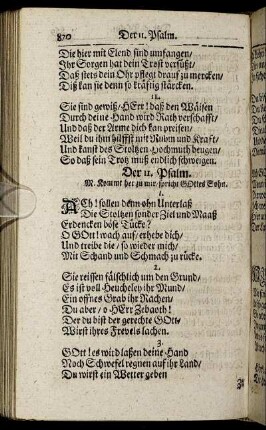 870 Der 11. Psalm.
Die hier mit Elend sind umfangen/
Ihr Sorgen hat dein Trost versüßt/
Daß stets dein Ohr pflegt drauf zu mercken/
Diß kan sie denn so kräftig stärcken.
11.
Sie sind gewiß/ HErr! daß den Wäisen
Durch deine Hand wird Rath verschafft/
Und daß der Arme dich kan preisen/
Weil du ihm hülffst mit Ruhm und Kraft/
Und kanst des Stoltzen Hochmuth beugen/
So daß sein Trotz muß endlich schweigen.
Der 11. Psalm.
M. Kommt her zu mir spricht GOttes Sohn.
1.
ACh! sollen denn ohn Unterlaß
Die Stoltzen sonder Ziel und Maaß
Erdencken böse Tücke?
O GOtt! wach auf/ erhebe dich/
Und treibe die/ so wieder mich/
Mit Schand und Schmach zu rücke.
2.
Sie reissen fälschlich um den Grund/
Es ist voll Heucheley ihr Mund/
Ein offnes Grab ihr Rachen/
Du aber/ o HErr Zebaoth!
Der du bist der gerechte GOtt/
Wirst ihres Frevels lachen.
3.
GOtt! es wird laßen deine Hand
Noch Schwefel regnen auf ihr Land/
Du wirst ein Wetter geben